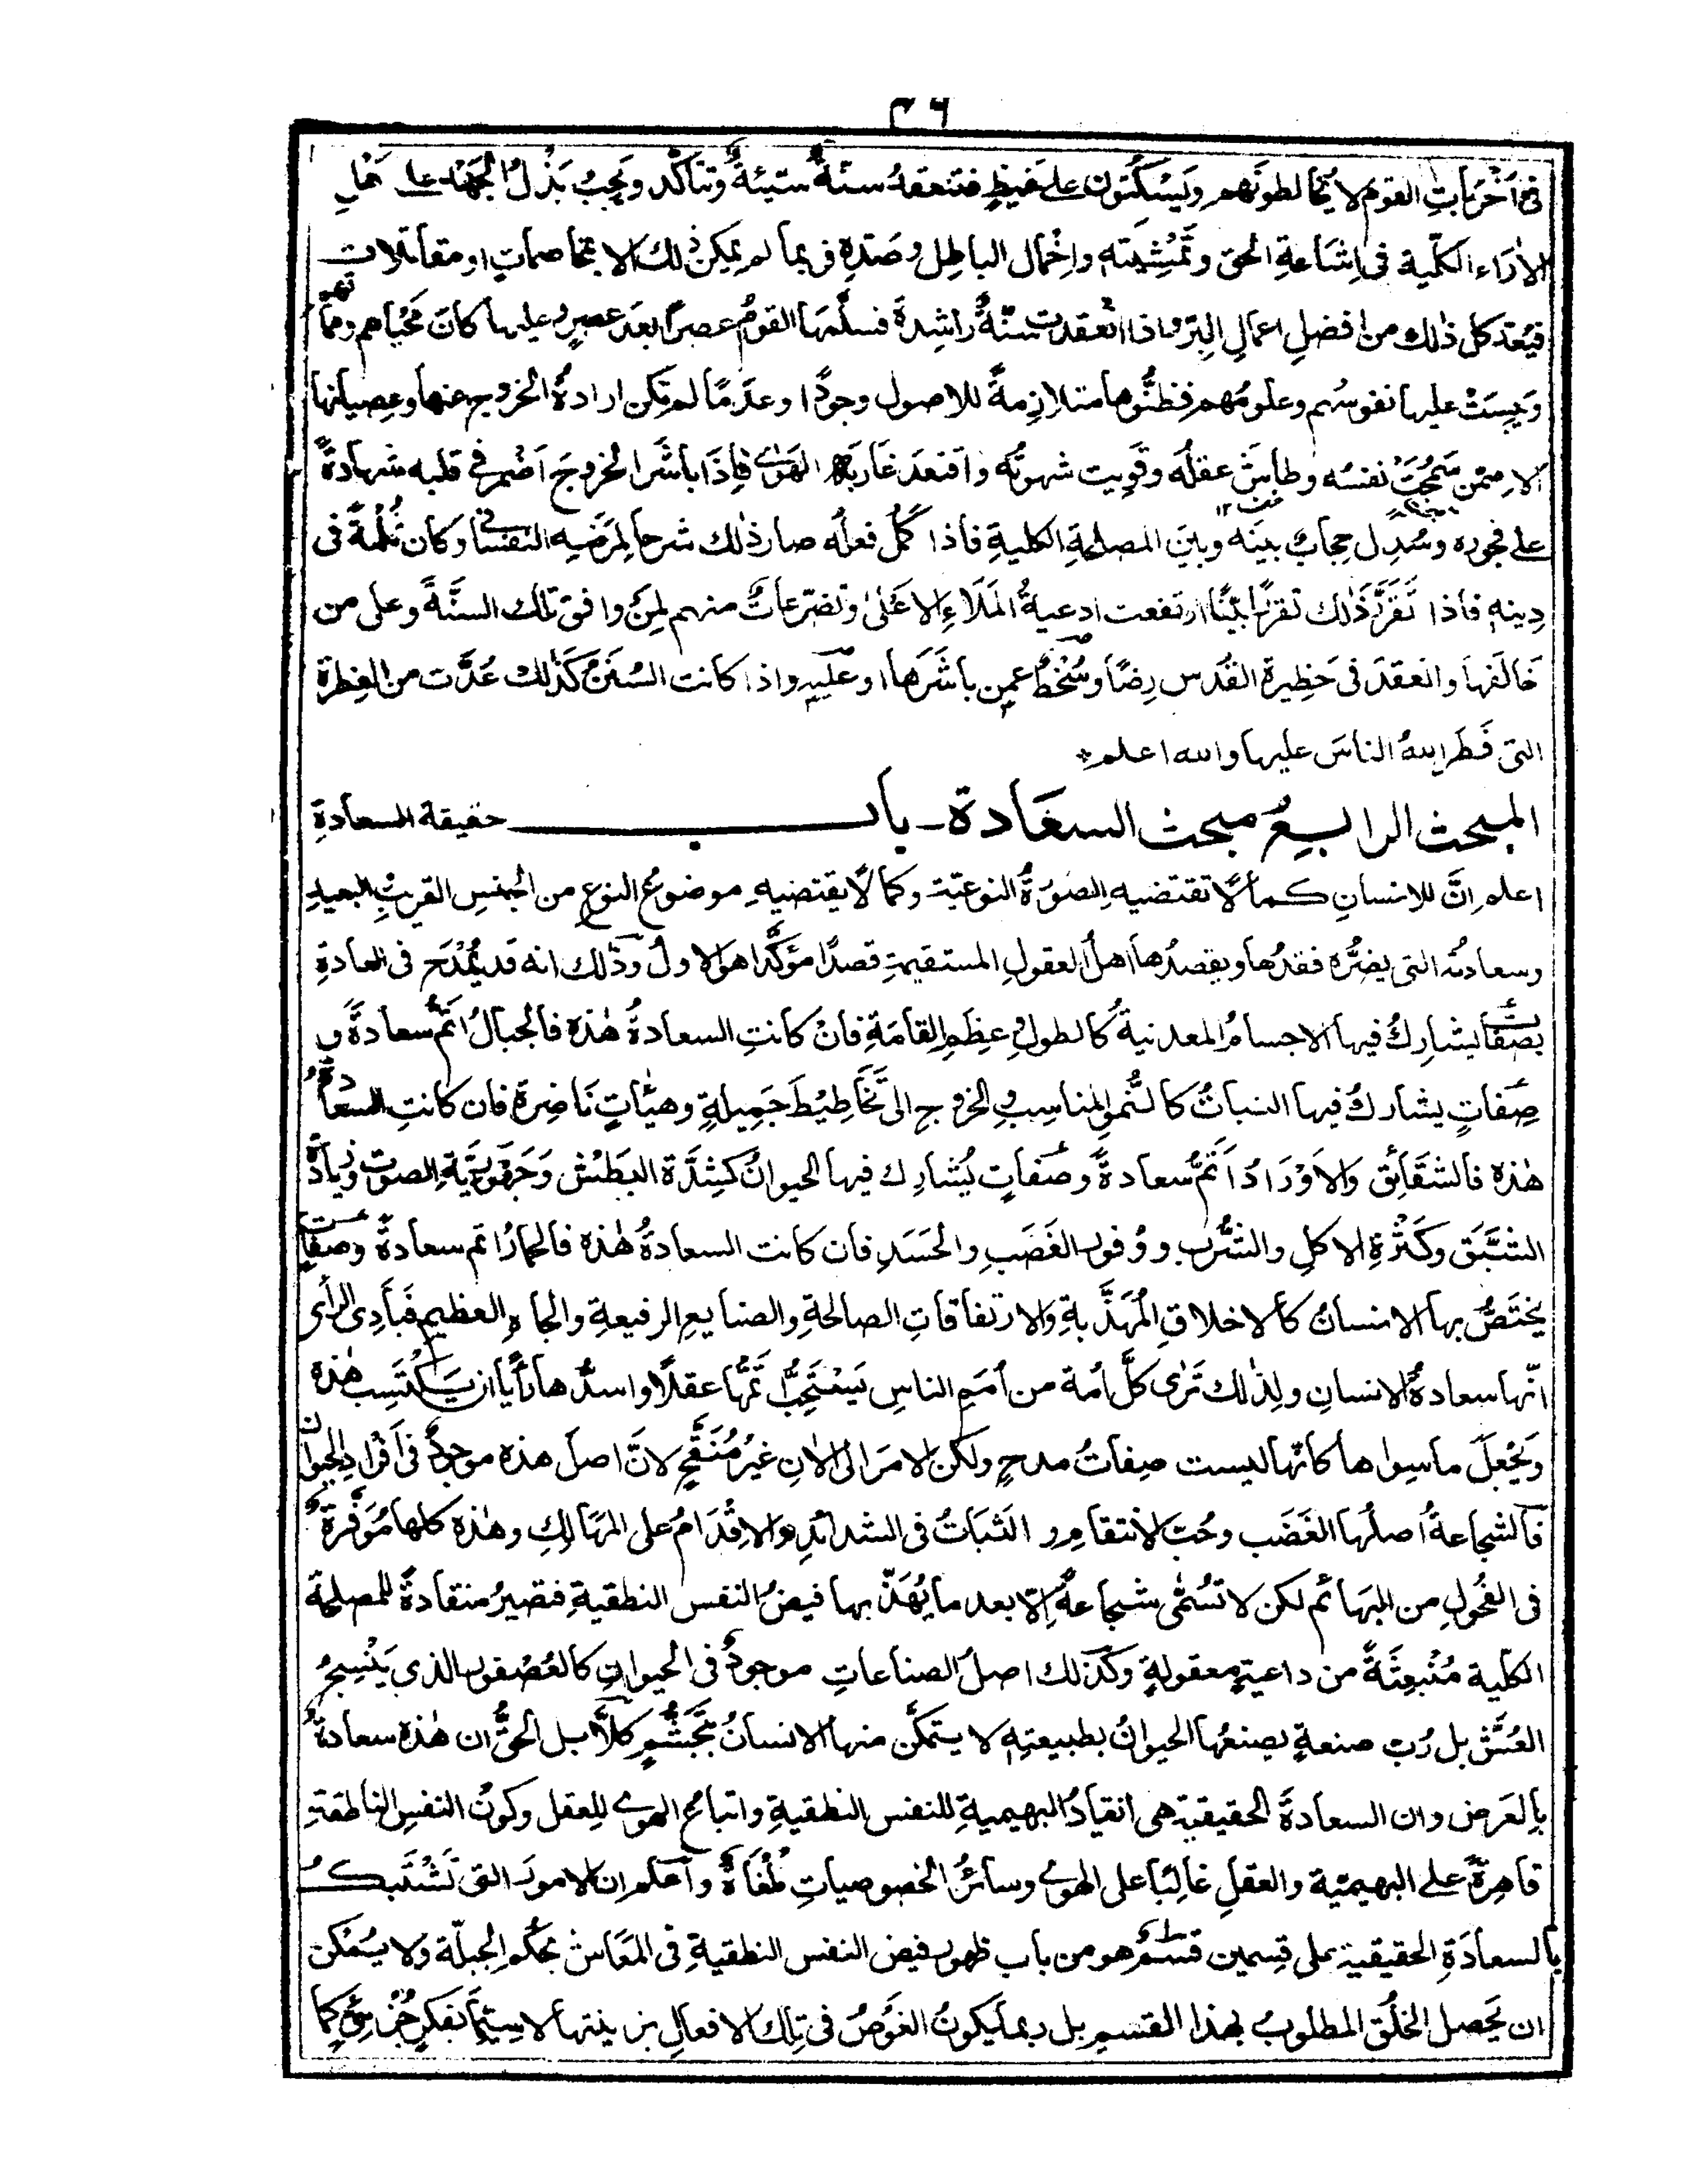 ٤٦
فى اُخْرَياتِ القومِ لا يُخالطونَهم ويَسْكُتون على غيظٍ فتنعقد سنةٌ سيئةٌ وتتأكّد ويَجِبُ بَذْلُ الجهد على اَهلِ
الاٰراءِ الكلّية فى اِشَاعةِ الحق وتَمْشِيَتِه واِخْمال الباطِل وصَدِّه فربما لم يمكن ذٰلك الا بمخاصماتٍ او مقاتلات
فيُعَدّ كل ذٰلك من افضلِ اعمالِ البِرّ واذا انعقدت سنّةٌ راشِدةٌ فسلَّمها القومُ عصرًا بعدَ عصرٍ وعليها كان مَحْياهم ومماتهم
ويبِسَتْ عليها نفوسُهم وعلومُهم فظنُّوها متلازِمةً للاصول وجودًا وعدَمًا لم تكن ارادةُ الخروج عنها وعِصيانها
الا ممّن سَمُجَتْ نفسُه وطاشَ عقلُه وقوِيت شهوتُه واقتعدَ غاربَه الهَوٰى فاِذَا باشَرَ الخروجَ اَضْمر فى قلبه شهادةً
على فجوره وسُدِل حِجابٌ بينَه وبين المصلحةِ الكليةِ فاذا كَمُلَ فعلُه صار ذٰلك شرحا لِمَرَضِه النفسانى وكان ثُلْمةً فى
دِينِه فاذا تَقَرَّرَ ذٰلك تقررًا بيّنًا ارتفعت ادعيةُ المَلَاءِ الاعلىٰ وتضرّعاتٌ منهم لمن وافق تلك السنَّةَ وعلى من
خالَفها وانعقدَ فى حَظِيرة القُدس رِضًا وسُخْطٌ عمن باشَرَها او عليه واذا كانت السُنَنُ كَذٰلك عُدَّت من الفِطرة
التى فَطَر اللهُ الناسَ عليها والله اعلم *
المبحث الرابعُ مبحث السعَادة - باب حقيقة السعادةِ
اعلم اِنَّ للانسانِ كمالًا تقتضيه الصُوْرةُ النوعيّة وكمالًا يقتضيه موضوعُ النوع من الجنسِ القريبِ البعيدِ
وسعادتُه التى يضرُّه فقدُها ويقصدُها اهلُ العقولِ المستقيمةِ قصدًا مؤكّدًا هو الاولُ وذٰلك انه قد يُمْدَح فى العادةِ
بصفاتٍ يشارِكُ فيها الاجسامُ المعدنيةُ كالطول وعِظَم القامَةِ فانْ كانتِ السعادةُ هٰذه فالجبالُ اتمُّ سعادةً و
صِفاتٍ يشاركُ فيها النباتُ كالنُّموِّ المناسِبِ والخروجِ الى تَخَاطِيْطَ جَمِيلةٍ وهيئاتٍ ناضِرةٍ فان كانتِ السعادةُ
هٰذه فالشقائِق والاَوْرَادُ اَتَمُّ سعادةً وصفاتٍ يُشارِك فيها الحيوانُ كشِدَّة البَطْش وجَهْوَرِيَّةِ الصوت وزيادة
الشَّبَق وكَثْرةِ الاكلِ والشُّربِ ووُفورِ الغَضَبِ والحَسَدِ فان كانت السعادةُ هٰذه فالحمارُ اتم سعادةً وصفاتٍ
يختَصُّ بها الانسانُ كالاخلاقِ المُهَذَّبةِ والارتفاقاتِ الصالحةِ والصنايعِ الرفيعةِ والجاهِ العظيمِ فبادِى الرأى
انّها سعادةُ الانسانِ ولِذٰلك تَرٰى كلَّ اُمة من اُمَمِ الناسِ يَسْتَحِبُّ اَتمُّها عقلًا واسدُّها رأيًا ان يكتَسِب هٰذه
ويَجْعَلَ ماسِواها كانّها ليست صِفاتُ مدحٍ ولكن الامرَ الى الاٰن غيرُ مُنَقَّحٍ لانّ اصلَ هذه موجودٌ فى اَفْرادِ الحيوان
فالشجاعةُ اصلُها الغَضَب وحُبّ الانتقامِ و الثباتُ فى الشدائدِ والاِقْدَامُ على المهالِكِ وهٰذه كلها مُوَفَّرةٌ
فى الفُحُولِ من البهائم لكن لا تُسَمّٰى شجاعةً اِلّا بعد ما يُهَذّبها فيضُ النفس النطقيةِ فتصيرُ منقادةً للمصلحة
الكلّية مُنْبعِثَةً من داعيةٍ معقولةٍ وكذٰلك اصلُ الصناعاتِ موجودٌ فى الحيوانِ كالعُصْفورِ الذى يَنْسِجُ
العُشَّ بل رُبّ صنعةٍ يصنعُها الحيوانُ بطبيعتِه لا يتمكّن منها الانسانُ بتَجَشُّمٍ كلّا بل الحقُّ ان هٰذه سعادةٌ
بالعَرَض وان السعادةَ الحقيقيةَ هى انقيادُ البهيميةِ للنفس النطقيةِ واتباعُ الهوٰى للعقل وكونُ النفسِ الناطقةِ
قاهِرةً على البهيميّة والعقلِ غالبًا على الهوٰى وسائرُ الخصوصياتِ مُلْغاةٌ واَعلم ان الامورَ التى تَشْتَبكُ
بالسعادَةِ الحقيقية على قِسمين قسمٌ هو من باب ظهور فيض النفس النطقيةِ فى المعَاش بحكم الجبلّة ولا يمكن
ان يَحصل الخُلُق المطلوبُ بهذا القسمِ بل ربما يكونُ الغَوْصُ فى تِلك الافعالِ بزينتها لاسِيّما بفكرٍ جُزْئىٍّ كما